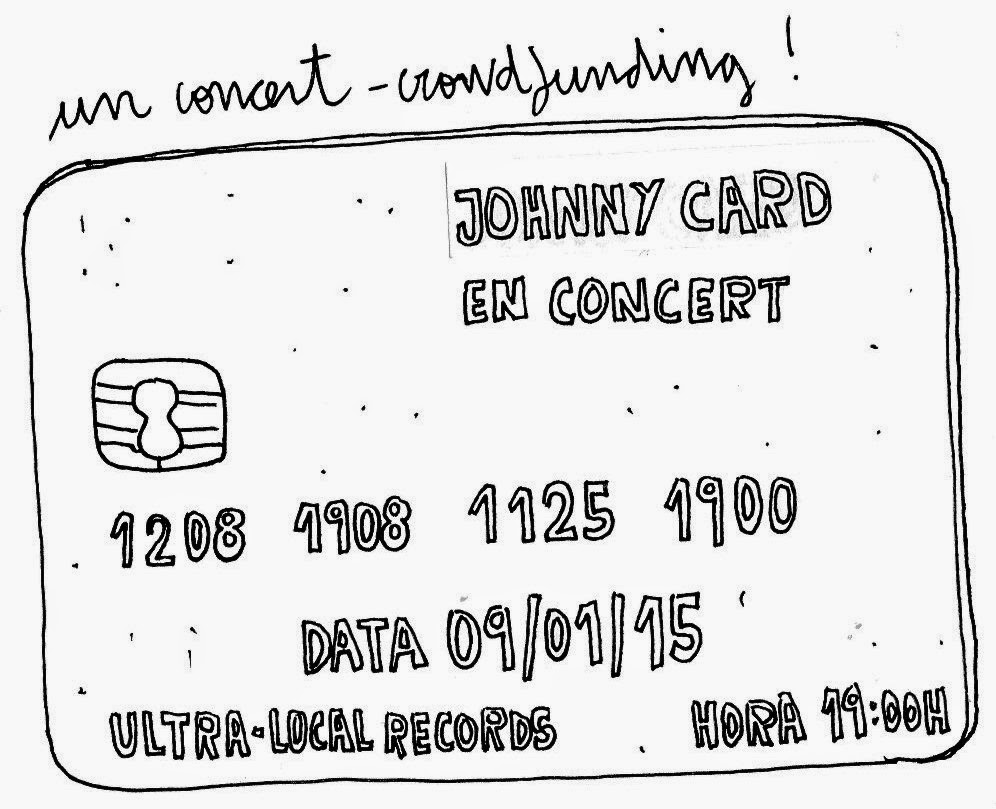 un concert - crowdfunding !
JOHNNY CARD
EN CONCERT
1208 1908 1125 1900
DATA 09/01/15
ULTRA-LOCAL RECORDS HORA 19:00H